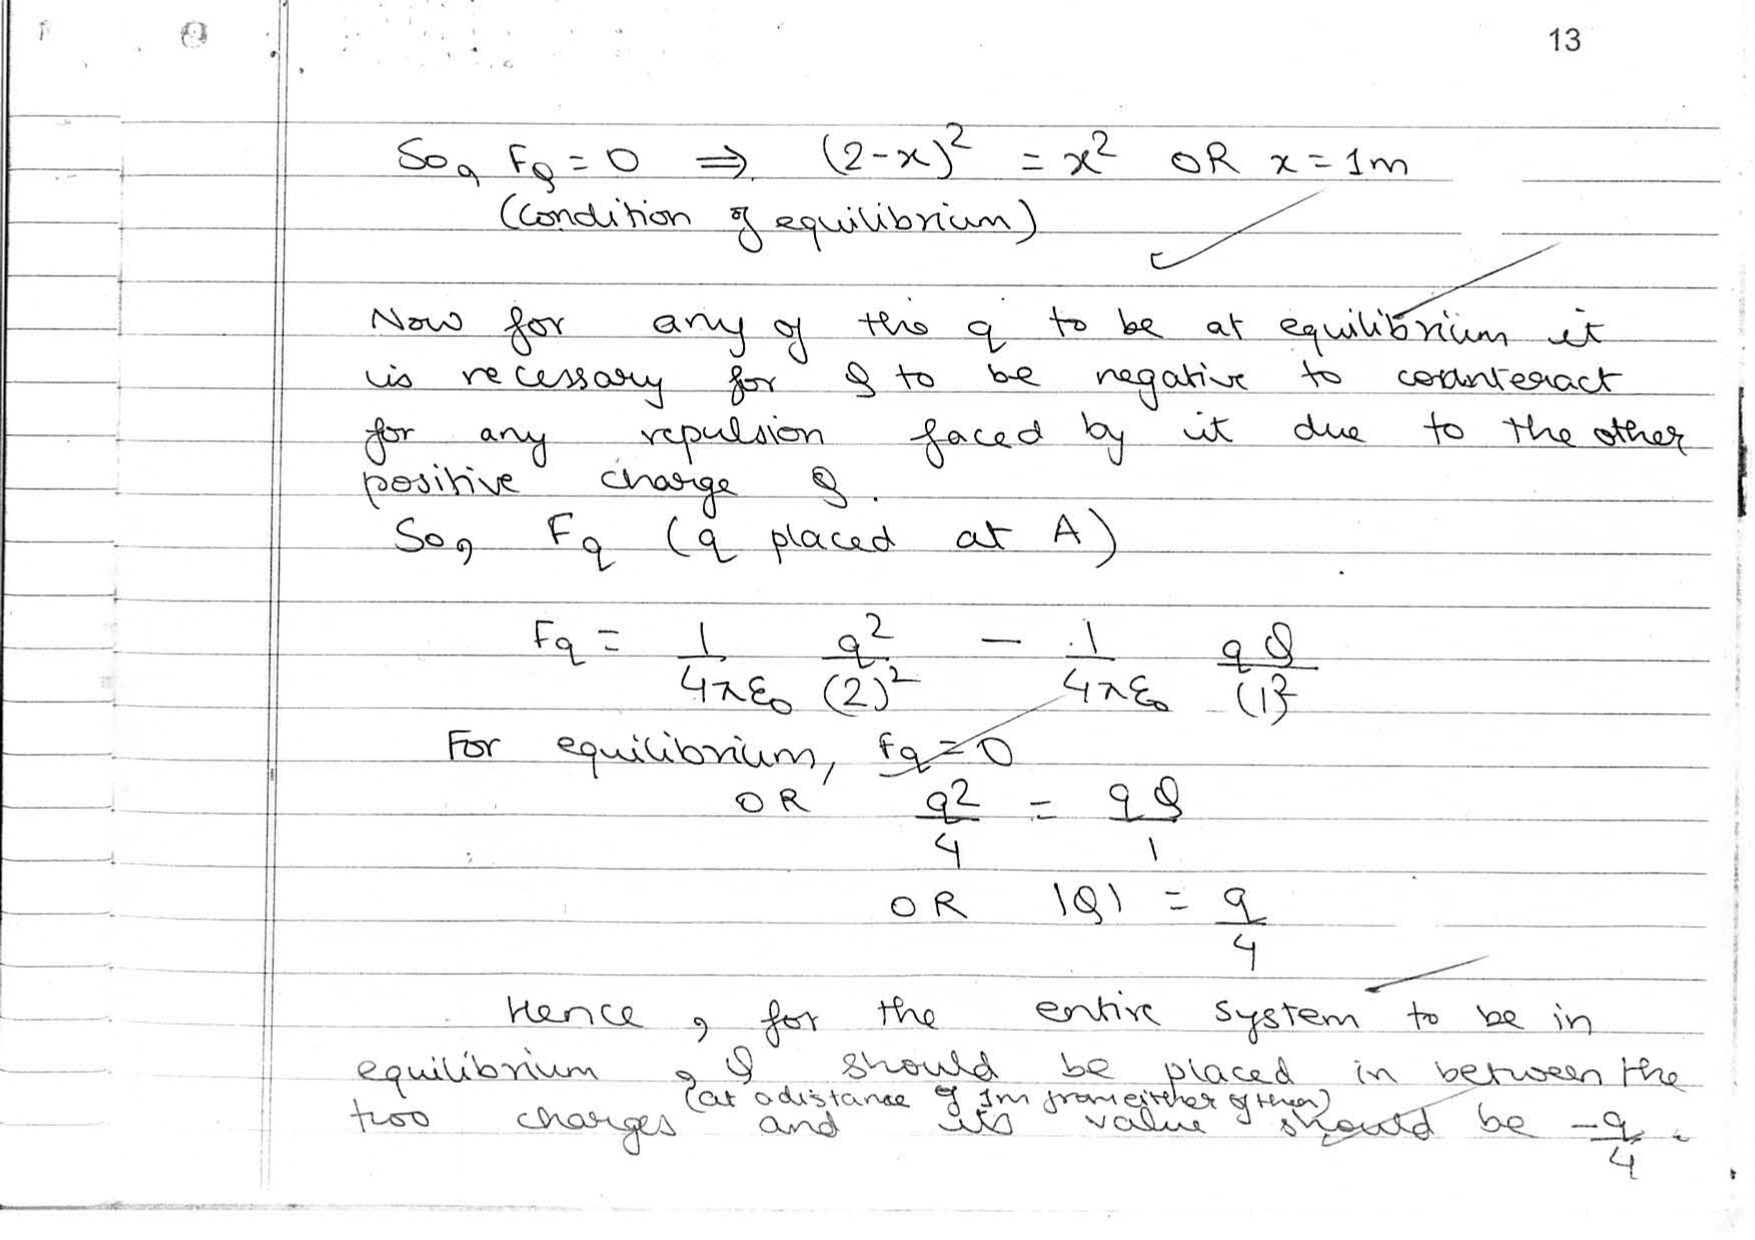 13
So, F_Q = 0 ⇒ (2-x)² = x² OR x = 1m
(Condition of equilibrium)
Now for any of the q to be at equilibrium it
is necessary for Q to be negative to counteract
for any repulsion faced by it due to the other
positive charge Q.
So, Fq (q placed at A)
Fq = 1/4πε₀ q²/(2)² - 1/4πε₀ qQ/(1)²
For equilibrium, Fq = 0
OR q²/4 = qQ/1
OR |Q| = q/4
Hence, for the entire system to be in
equilibrium, Q should be placed in between the
(at a distance of 1m from either of them)
two charges and its value should be -q/4.